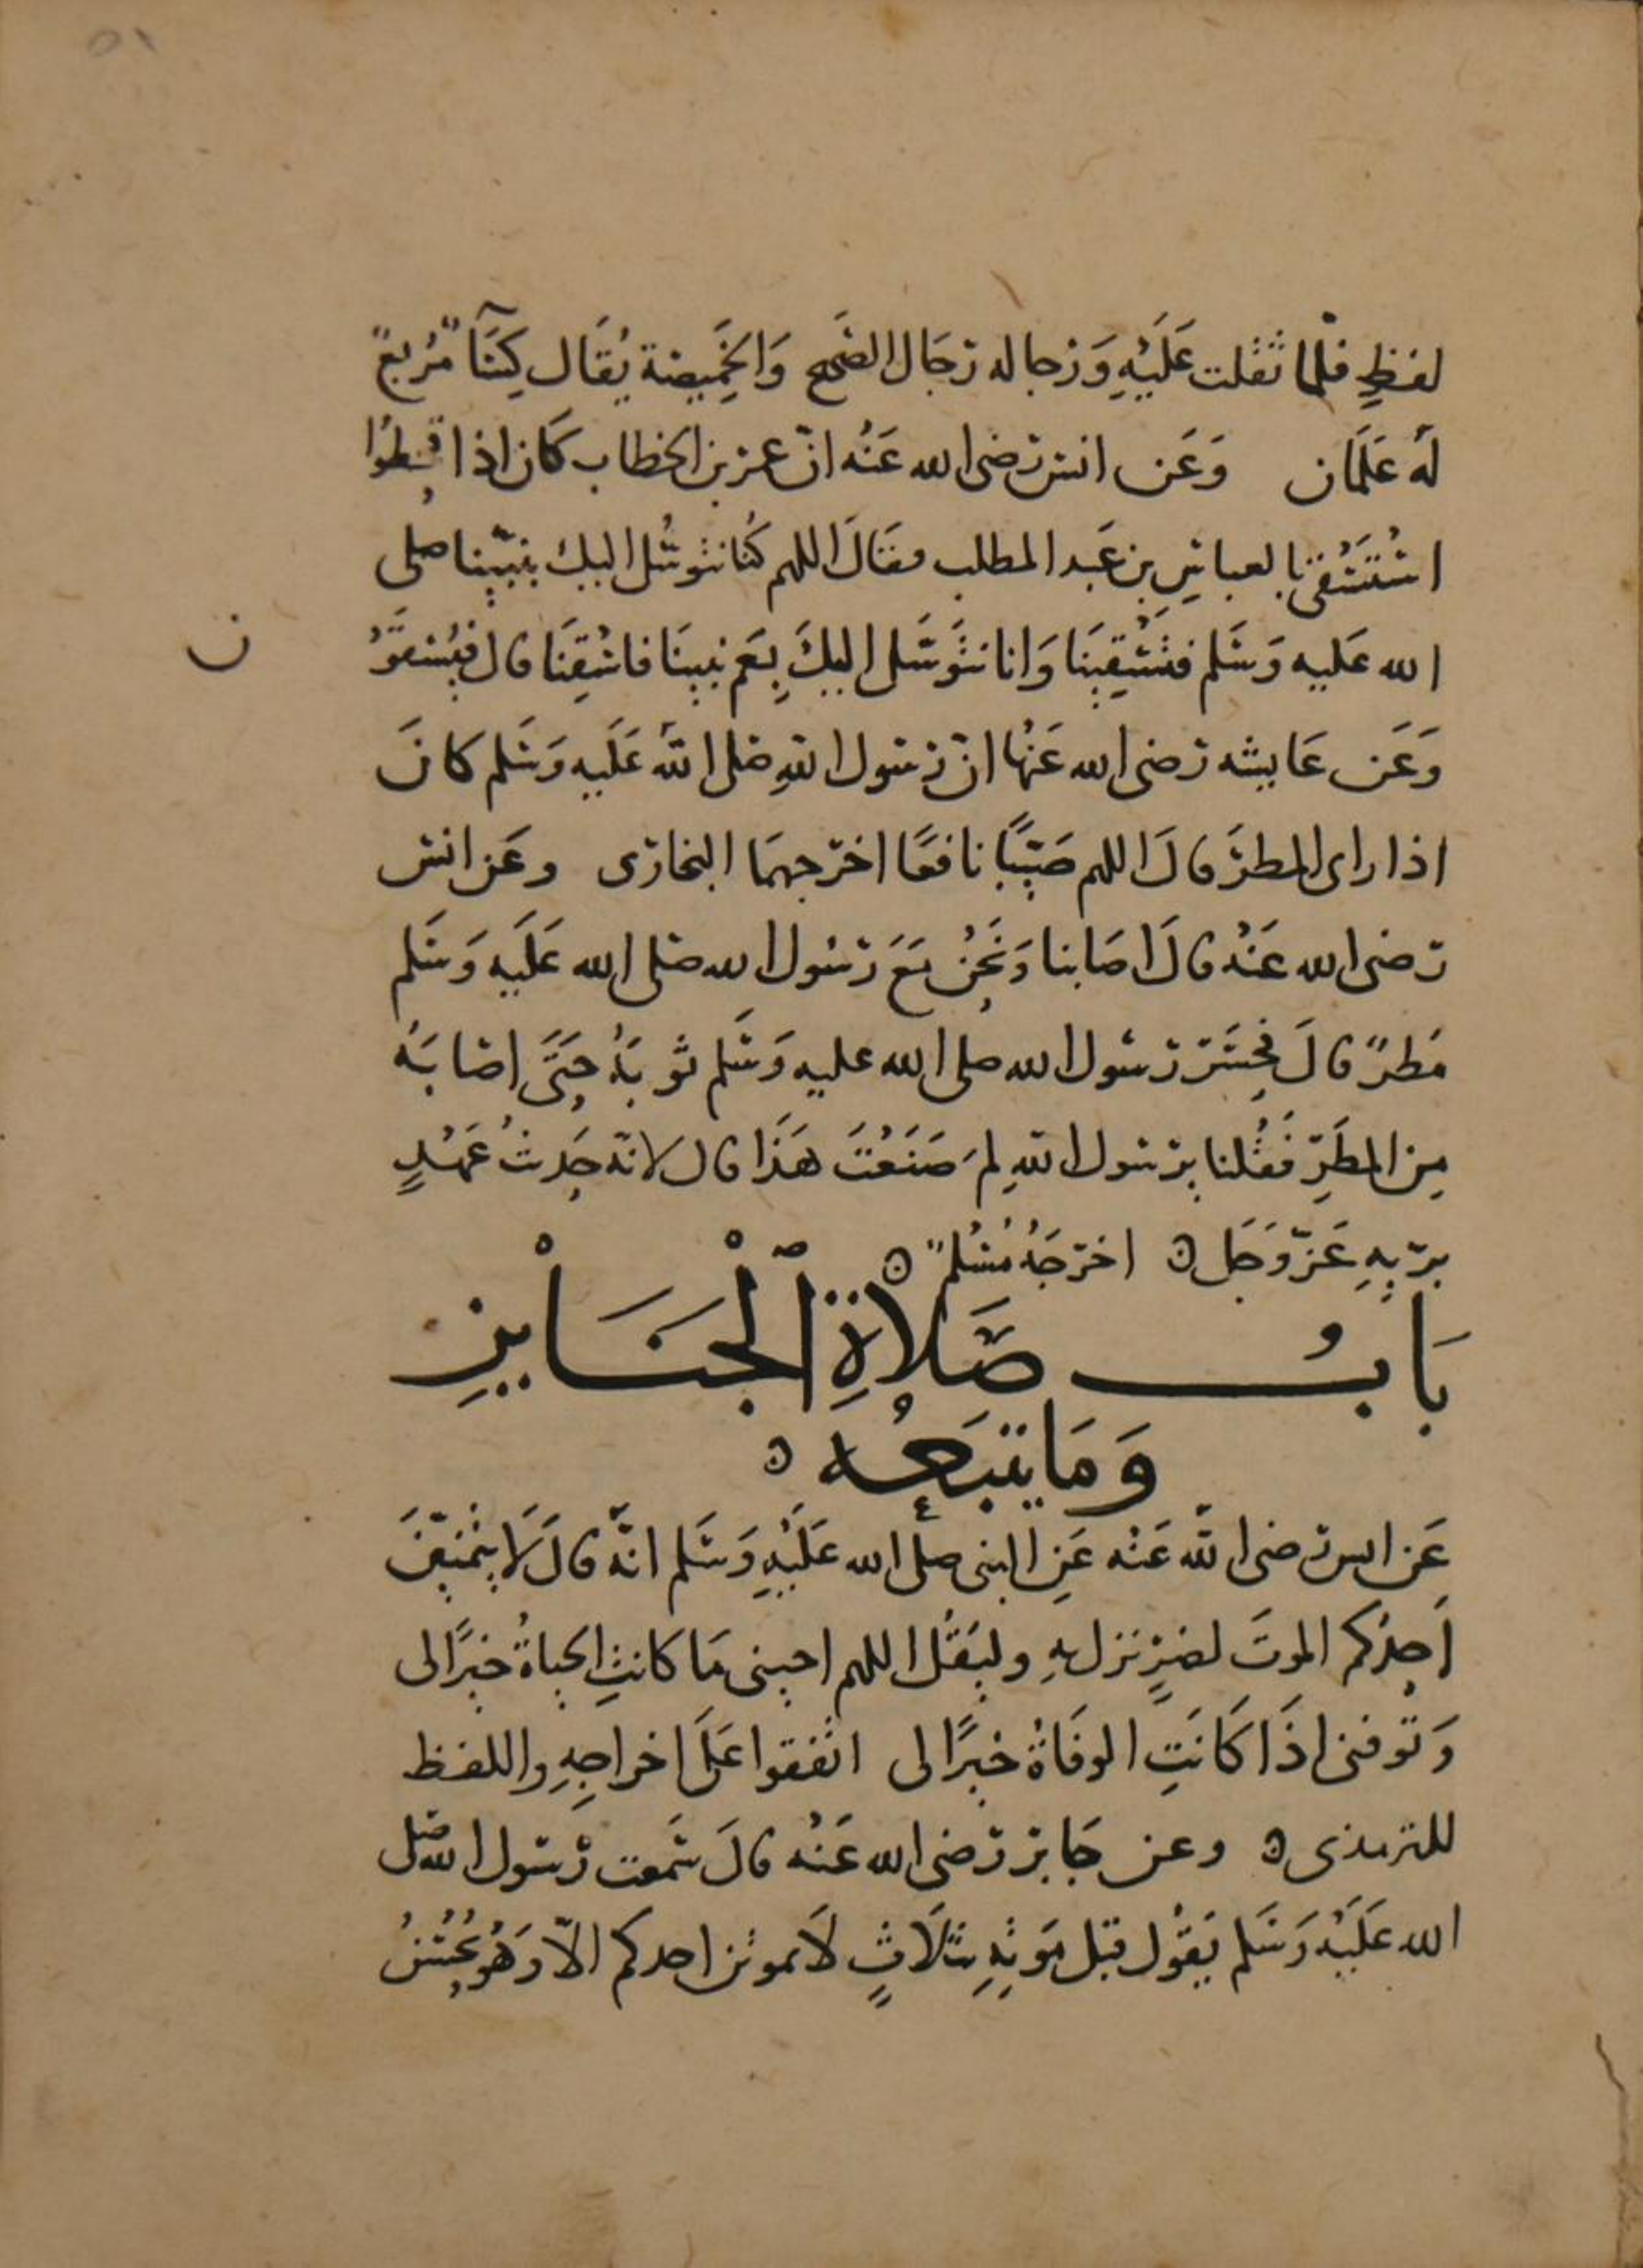 ٥١
لفظٍ فلما ثقلت عَلَيْهِ وَرجاله رجَال الصَّحيح وَالخَمِيصَة يُقَال كِسَآءٌ مُرَبعٌ
لَهُ عَلَمَان وَعَن انس رضى الله عَنْه انّ عمر بن الخطاب كَان اذا قحطُوا
اسْتَسْقى بالعباسِ بن عَبد المطلب فقَالَ اللهم كُنا نتوسَّل اليك بنبيّنا صلى
الله عَليه وَسَلم فتَسْقِينَا وَانا نتَوَسَّل اليكَ بِعَم نبينَا فاسْقِنَا قال فيُسْقَوْ
ن
وَعَن عَايشه رَضى الله عَنْها انّ رَسُول اللهِ صَلى اللهُ عَلَيه وَسَلم كانَ
اذا راى المطرَ قالَ اللهم صَيّبًا نافعًا اخرَجهمَا البخارى وعَن انس
رَضى الله عَنْهُ قالَ اصَابنا وَنَحْنُ مَعَ رَسُول الله صَلى الله عَلَيه وَسَلم
مَطرٌ قالَ فحَسَر رَسُول الله صلى الله عليه وَسَلم ثوبَهُ حَتَّى اصَابَهُ
مِن المطَرِ فَقُلنا يرسول اللهِ لِمَ صَنَعْتَ هَذَا قال لانّه حَدِيثُ عَهْدٍ
بربهِ عَزّ وَجَل ه اخرَجَهُ مُسْلمٌ ه
بَابُ صَلاةِ الْجَنَايزِ
وَمَا يتبَعُه ه
عَن انس رضى اللهُ عَنْه عَنِ النبى صلى الله عَلَيْهِ وَسَلم انهُ قالَ لَا يتمنَّيَنَّ
اَحدُكم الموتَ لضرٍ نزل بهِ وليَقُل اللهم احينى مَا كانتِ الحياةُ خيرًا لى
وَتوفنى اذَا كَانَتِ الوفَاةُ خيرًا لى اتفقوا عَلى اخراجِهِ واللفظ
للترمذى ه وعن جَابر رَضى الله عَنْه قالَ سَمعت رَسُول الله صَلى
الله عَلَيْه وَسَلم يَقُول قبل مَوتهِ بثَلَاثٍ لَا يموتن احدكم الاّ وَهُو يُحْسنُ